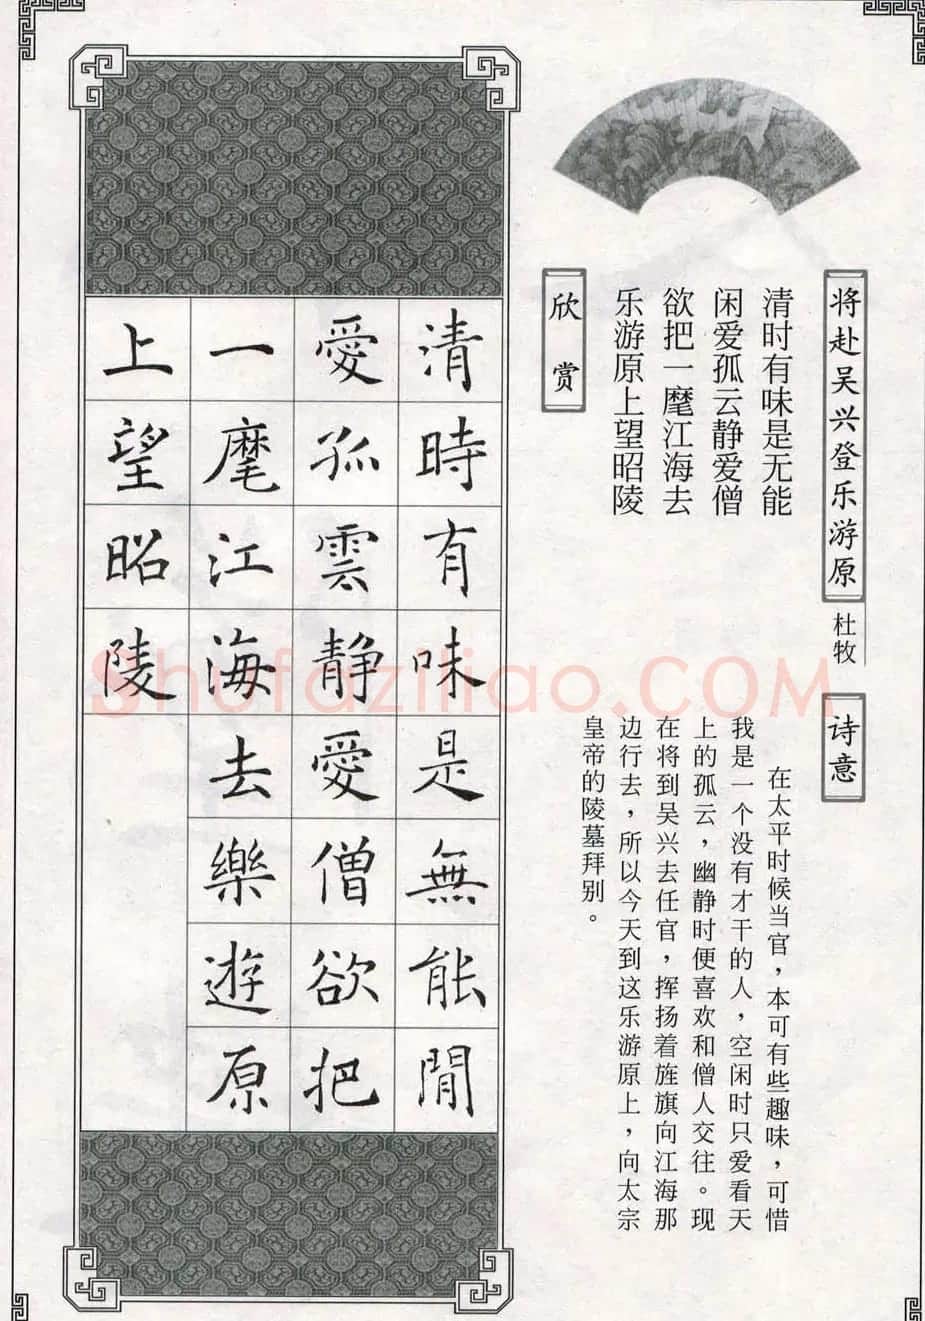 将赴吴兴登乐游原
杜牧
清时有味是无能
闲爱孤云静爱僧
欲把一麾江海去
乐游原上望昭陵
诗意
在太平时候当官，本可有些趣味，可惜
我是一个没有才干的人，空闲时只爱看天
上的孤云，幽静时便喜欢和僧人交往。现
在将到吴兴去任官，挥扬着旌旗向江海那
边行去，所以今天到这乐游原上，向太宗
皇帝的陵墓拜别。
欣赏
清時有味是無能閒
愛孤雲静愛僧欲把
一麾江海去樂遊原
上望昭陵
Shufaziliao.COM